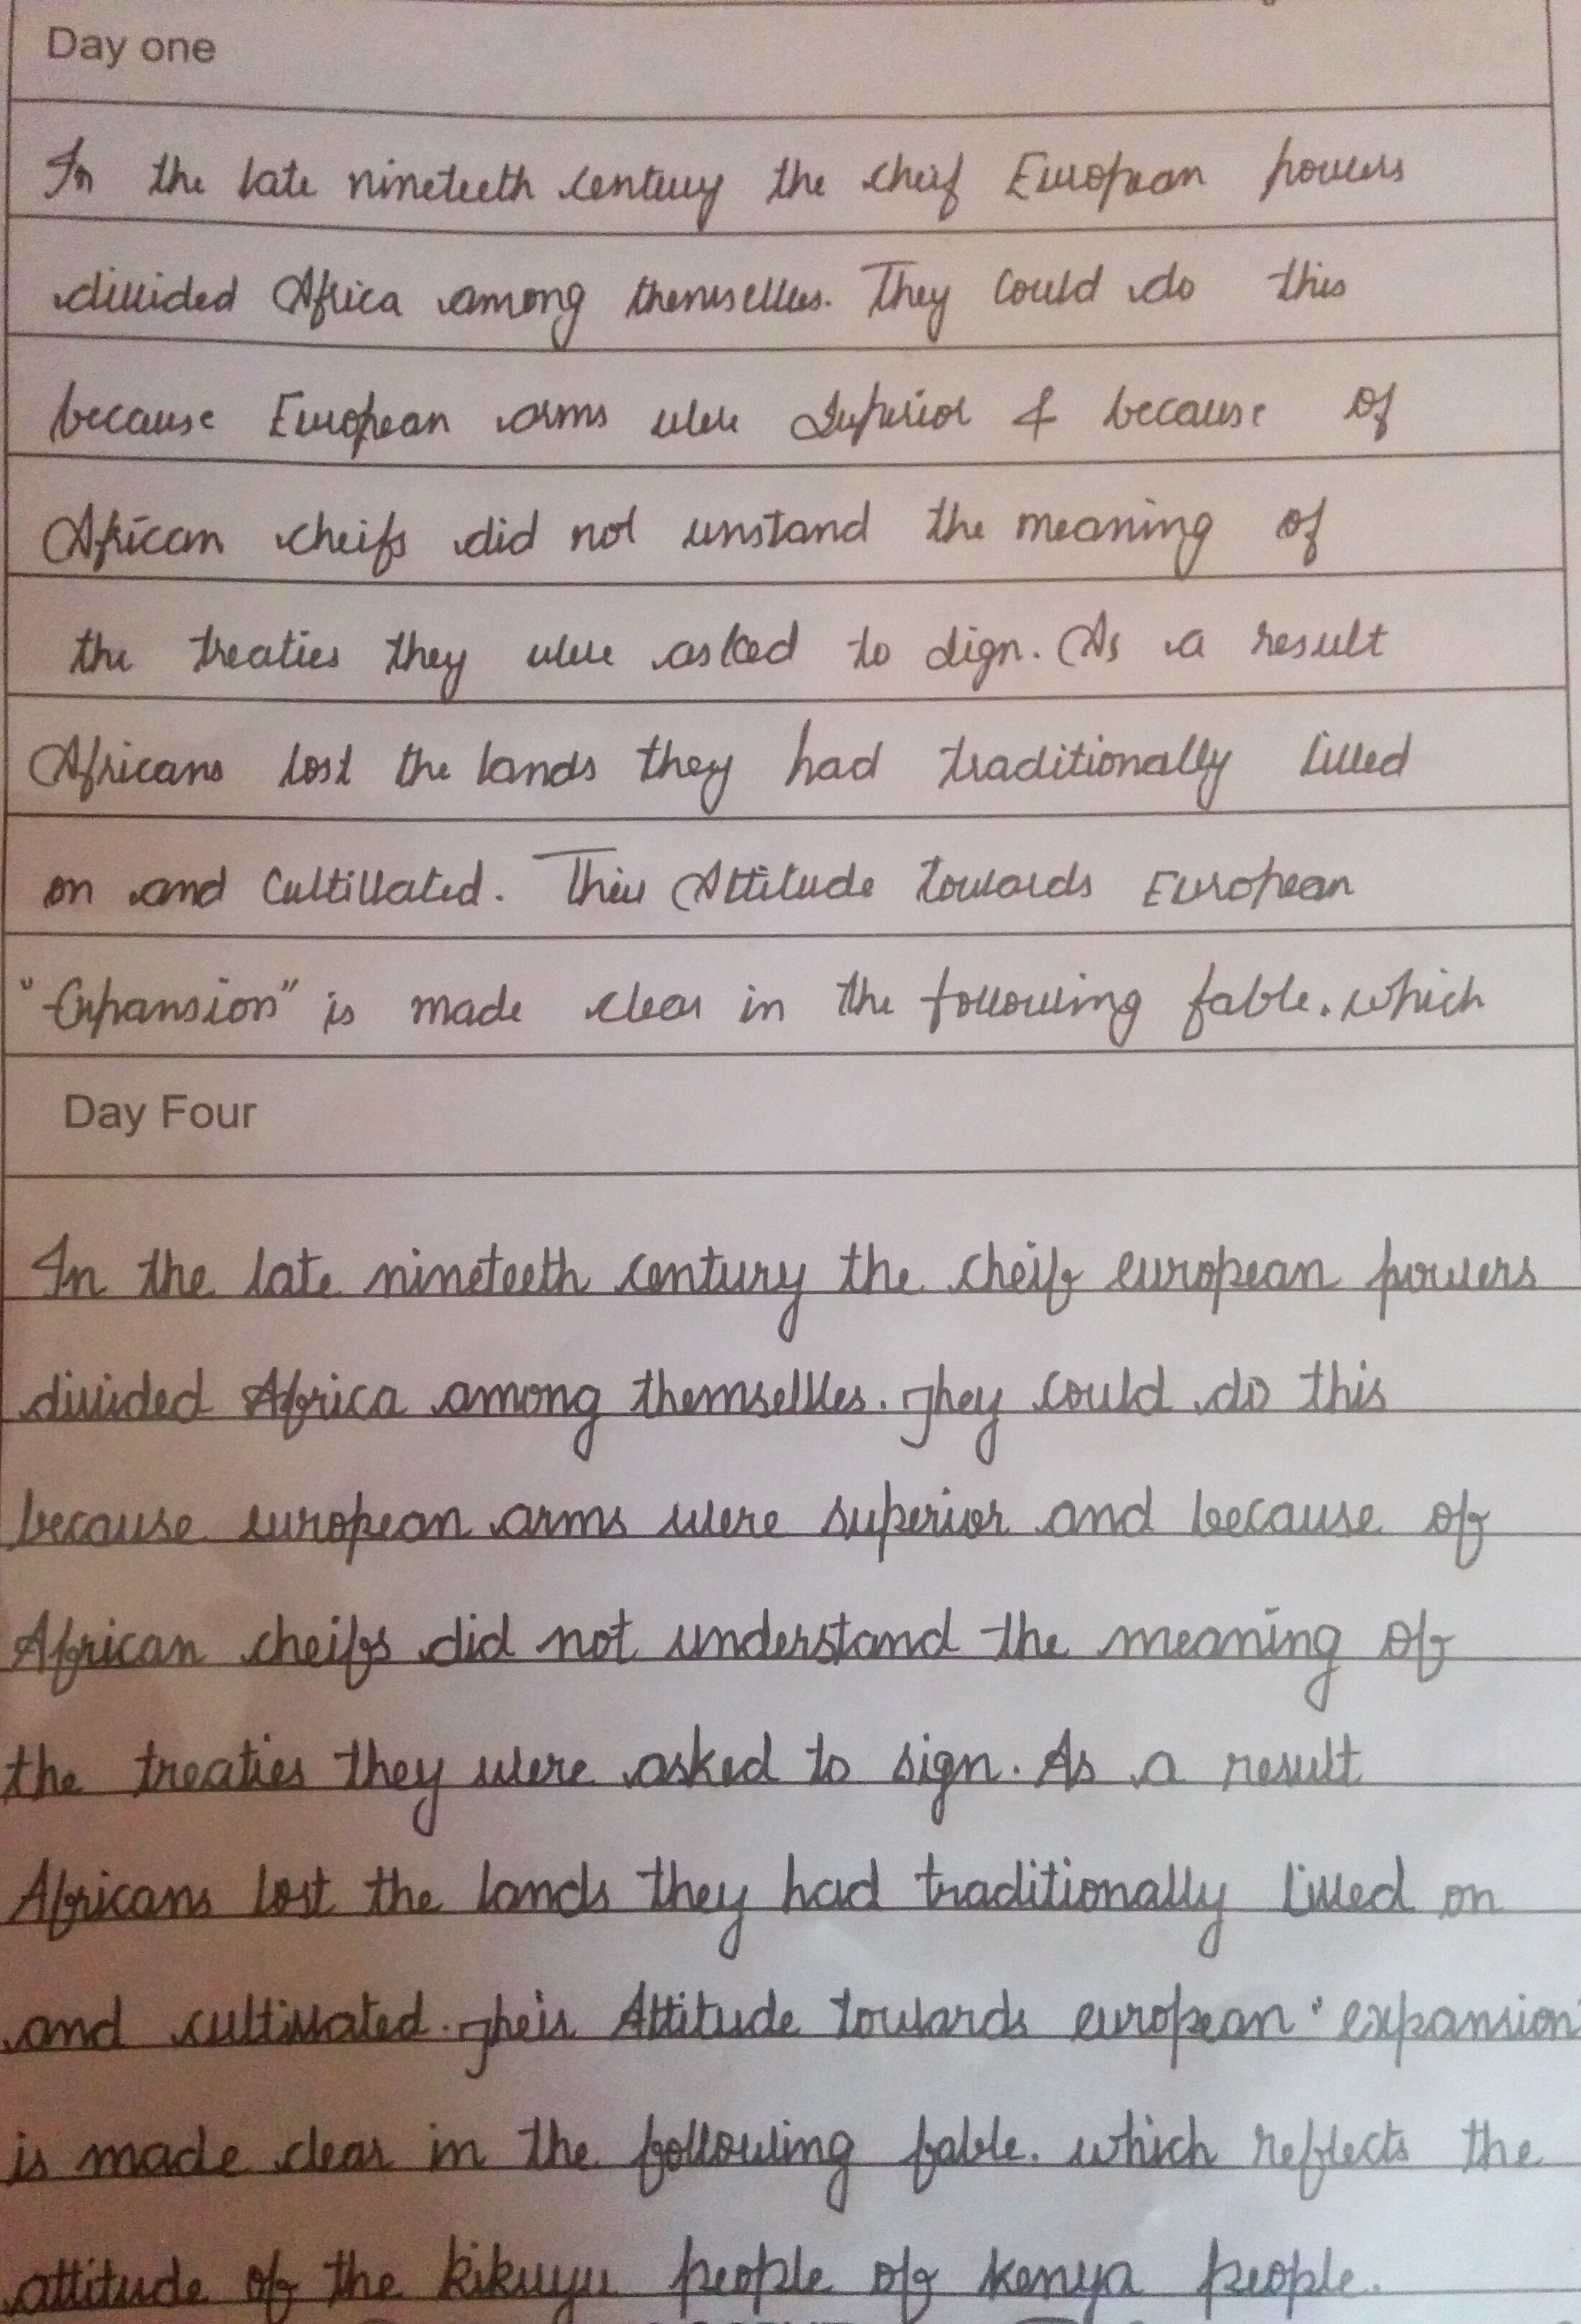 Day one
In the late nineteeth century the cheif European powers
divided Africa among themselves. They could do this
because European arms were Superior & because of
African cheifs did not unstand the meaning of
the treaties they were asked to sign. As a result
Africans lost the lands they had traditionally lived
on and Cultivated. Their Attitude towards European
"Expansion" is made clear in the following fable. which
Day Four
In the late nineteeth century the cheif european powers
divided Africa among themselves. They could do this
because european arms were superior and because of
African cheifs did not understand the meaning of
the treaties they were asked to sign. As a result
Africans lost the lands they had traditionally lived on
and cultivated. Their Attitude towards european "expansion"
is made clear in the following fable. which reflects the
attitude of the kikuyu people of kenya people.